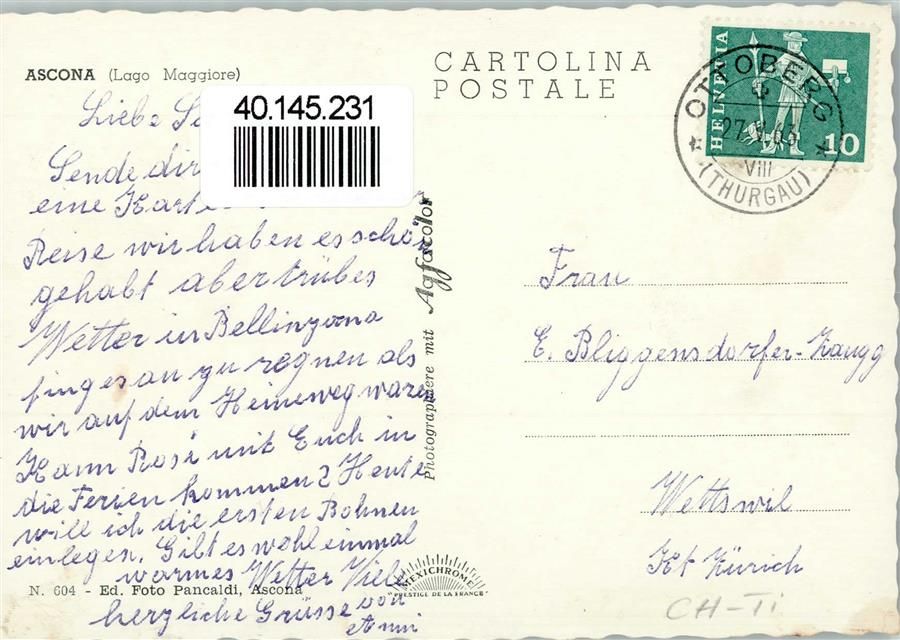 ASCONA (Lago Maggiore)
CARTOLINA
POSTALE
HELVETIA
10
OTTOBERG
63
VIII
(THURGAU)
40.145.231
Liebe
Sende dir
eine Karte
Reise wir haben es schön
gehabt aber trübes
Wetter in Bellinzona
finges an zu regnen als
wir auf dem Heimeweg waren
Kann Rosi mit Euch in
die Ferien kommen? Heute
will ich die ersten Bohnen
einlegen. Gibt es wohl einmal
warmes Wetter Viele
herzliche Grüsse von
Anni
Photographiere mit Agfacolor
Frau
E. Bliggensdorfer-Zaugg
Wettswil
Kt Zürich
CH-Ti
MEXICHROME
"PRESTIGE DE LA FRANCE"
N. 604 - Ed. Foto Pancaldi, Ascona